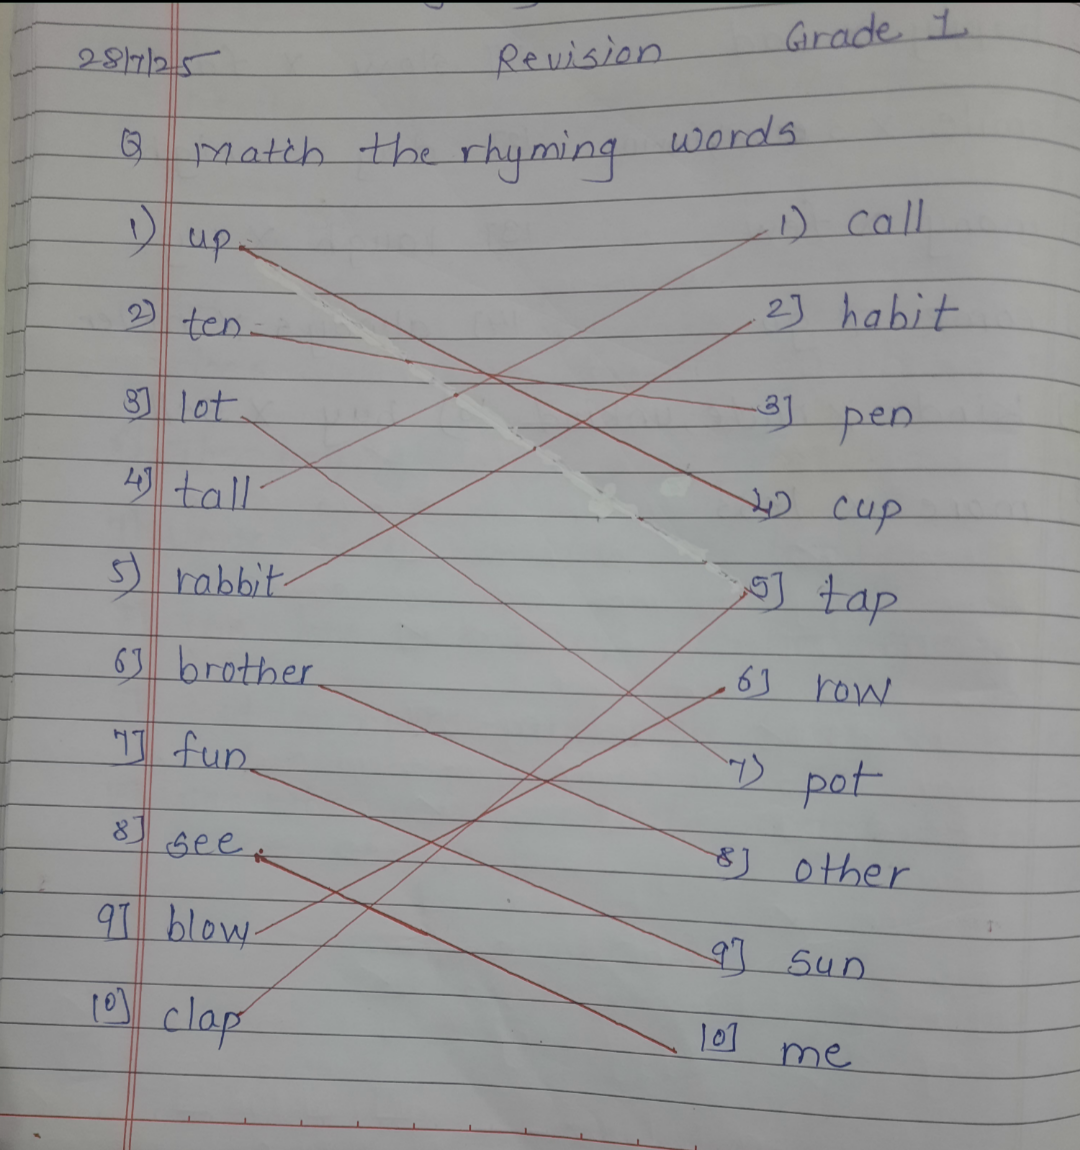 28/7/25 Revision Grade 1
Q match the rhyming words
1) up 1) call
2) ten 2] habit
3] lot 3] pen
4] tall 4) cup
5) rabbit 5] tap
6] brother 6] row
7] fun 7) pot
8] see 8] other
9] blow 9] sun
10] clap 10] me